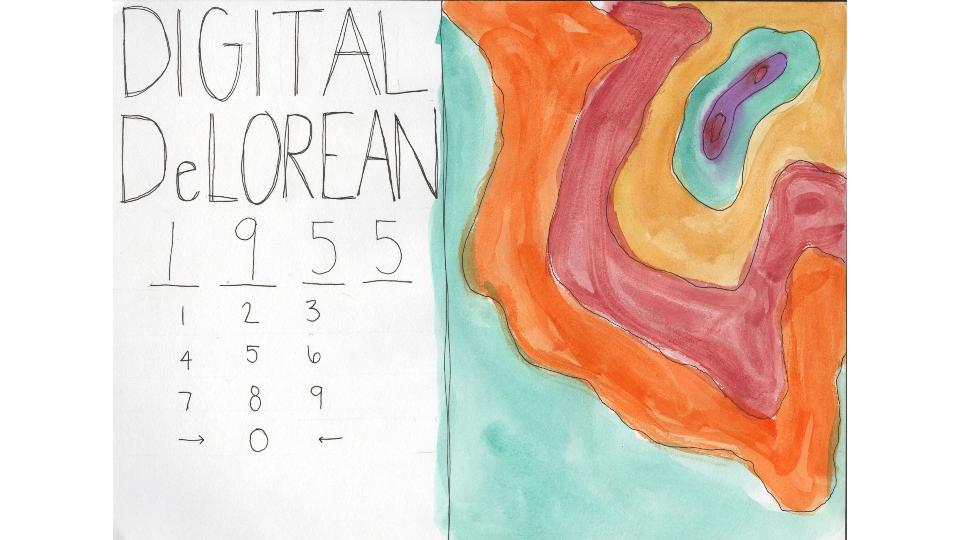 DIGITAL
DeLOREAN
1 9 5 5
1 2 3
4 5 6
7 8 9
→ 0 ←